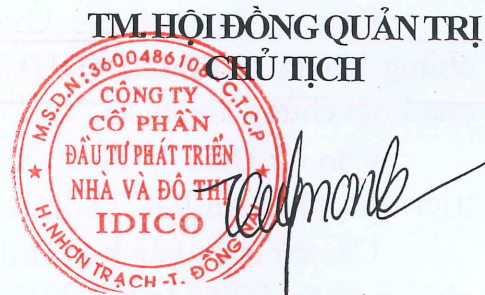 TM. HỘI ĐỒNG QUẢN TRỊ
CHỦ TỊCH
M.S.D.N: 3600486106 C.T.C.P
CÔNG TY
CỔ PHẦN
ĐẦU TƯ PHÁT TRIỂN
NHÀ VÀ ĐÔ THỊ
IDICO
H. NHƠN TRẠCH - T. ĐỒNG NAI